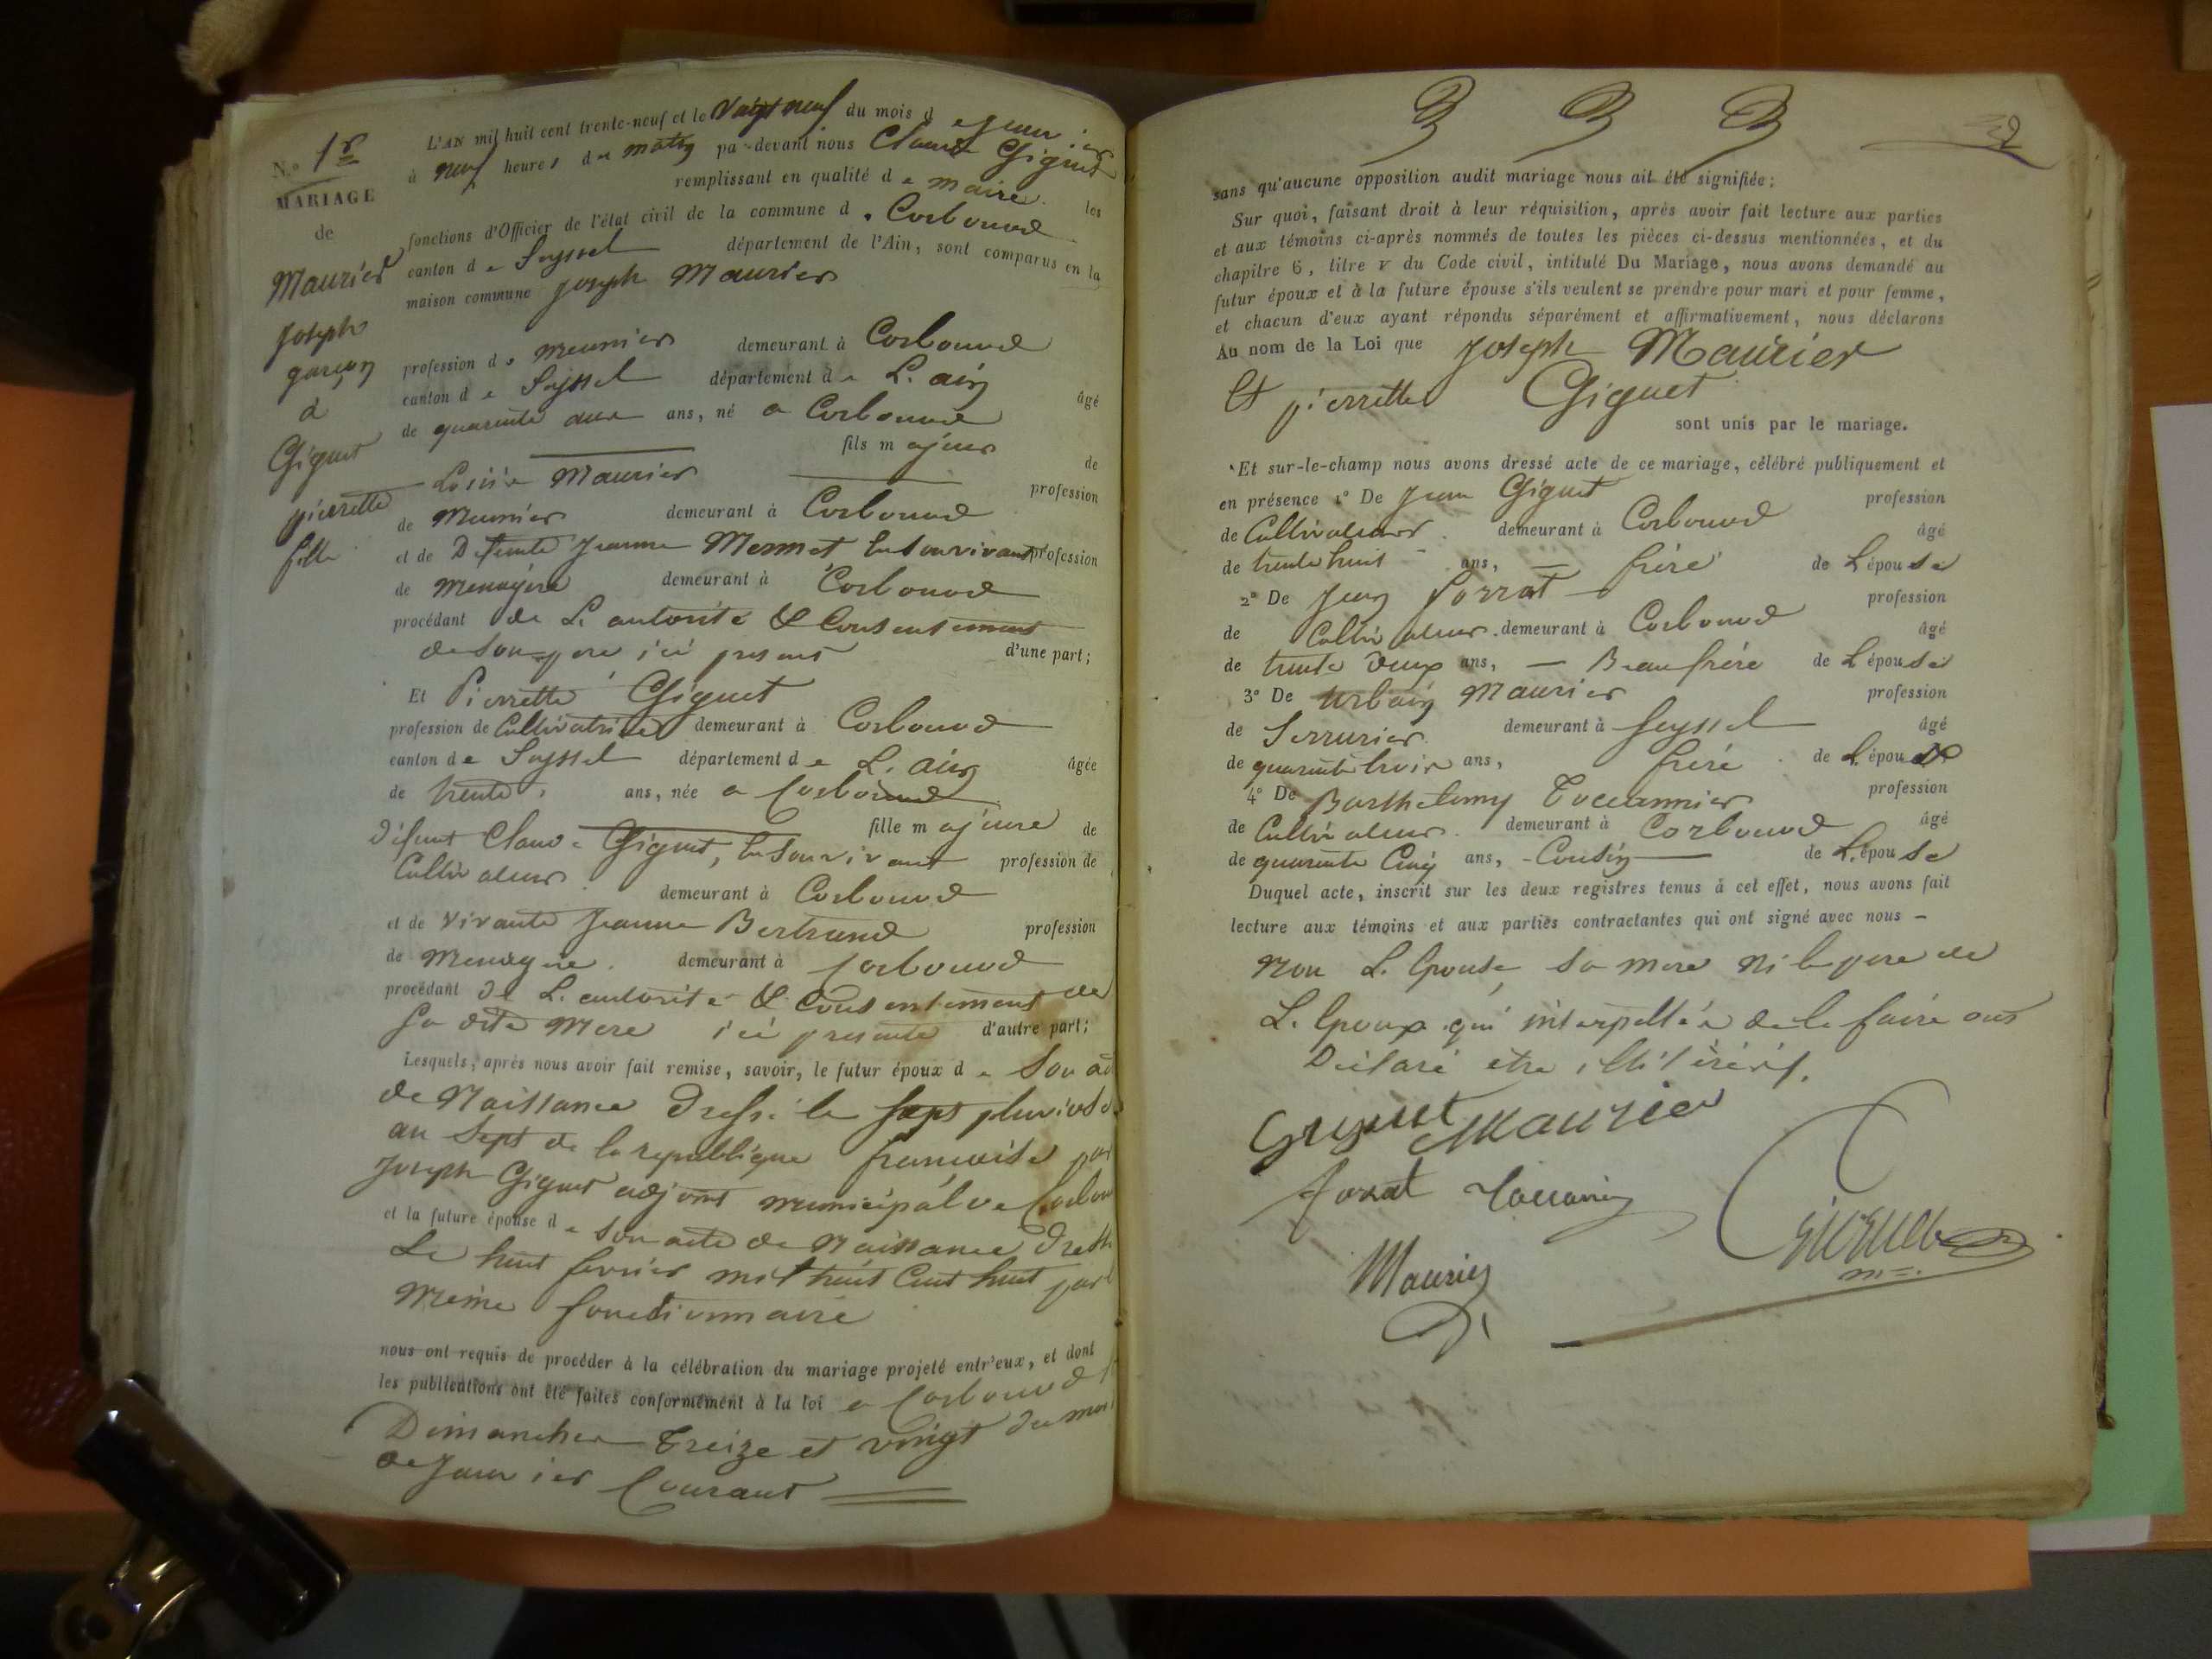 N.o 1er
MARIAGE
de
Maurier
Joseph
garçon
à
Giguet
pierrette
fille
L'AN mil huit cent trente-neuf et le Vingt neuf du mois de Janvier
à neuf heures du matin par-devant nous Claude Giguet
remplissant en qualité de maire. les
fonctions d'Officier de l'état civil de la commune de Corbonod
canton de Seyssel département de l'Ain, sont comparus en la
maison commune Joseph Maurier
profession de meunier demeurant à Corbonod
canton de Seyssel département de L. ain
âgé
de quarante ans, né a Corbonod
fils majeur
de
Maurier
profession
de Meunier demeurant à Corbonod
et de Defunte Jeanne Mermet lui survivant profession
de menagère demeurant à Corbonod
procédant de L. autorité & Consentement
de son pere ici present d'une part;
Et Pierrette Giguet
profession de Cultivatrice demeurant à Corbonod
canton de Seyssel département de L. ain âgée
de trente ans, née a Corbonod
fille majeure de
défunt Claude Giguet, lui survivant profession de
Cultivateur demeurant à Corbonod
et de vivante Jeanne Bertrand profession
de Menagère. demeurant à Corbonod
procédant de L. autorité & Consentement de
sa dite Mere ici presente d'autre part;
Lesquels, après nous avoir fait remise, savoir, le futur époux de Son ac
de Naissance Dressé le sept pluviose
an sept de la republique francaise par
Joseph Giguet adjoint municipal de Corbon
et la future épouse de son acte de Naissance Dressé
Le huit fevrier mil huit Cent huit par l
même fonctionnaire
nous ont requis de procéder à la célébration du mariage projeté entr'eux, et dont
les publications ont été faites conformément à la loi a Corbonod
Dimanches Treize et vingt du mois
de Janvier Courant
sans qu'aucune opposition audit mariage nous ait été signifiée;
Sur quoi, faisant droit à leur réquisition, après avoir fait lecture aux parties
et aux témoins ci-après nommés de toutes les pièces ci-dessus mentionnées, et du
chapitre 6, titre v du Code civil, intitulé Du Mariage, nous avons demandé au
futur époux et à la future épouse s'ils veulent se prendre pour mari et pour femme,
et chacun d'eux ayant répondu séparément et affirmativement, nous déclarons
Au nom de la Loi que Joseph Maurier
Et pierrette Giguet
sont unis par le mariage.
Et sur-le-champ nous avons dressé acte de ce mariage, célébré publiquement et
en présence 1° De Jean Giguet profession
de Cultivateur. demeurant à Corbonod âgé
de trente huit ans, frére de L'épouse
2° De Jean Forrat profession
de Cultivateur. demeurant à Corbonod âgé
de trente deux ans, — Beau frére de L'épouse
3° De Urbain Maurier profession
de Serrurier. demeurant à Seyssel âgé
de quarante trois ans, frére de L'épou
4° De Barthelemy Toccannier profession
de Cultivateur. demeurant à Corbonod âgé
de quarante Cinq ans, - Cousin de L'épouse
Duquel acte, inscrit sur les deux registres tenus à cet effet, nous avons fait
lecture aux témoins et aux parties contractantes qui ont signé avec nous —
Non L. Epouse, sa mere Ni le pere de
L. Epoux qui interpellés de le faire ont
Déclaré etre illitérés.
Giguet Maurier
forrat Toccanier
Giguet
m=.
Maurier